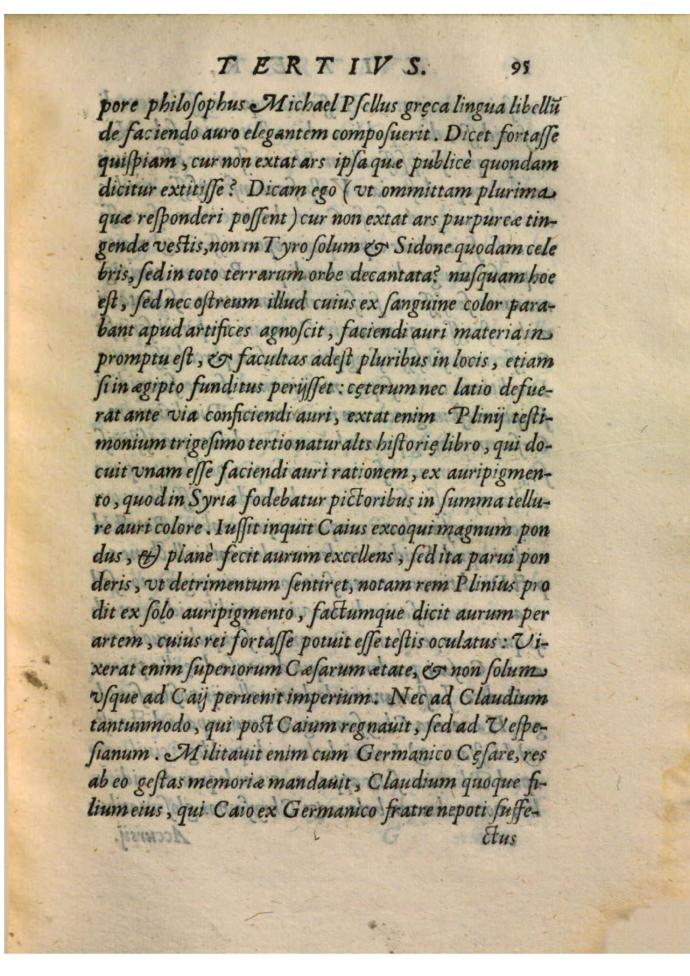 TERTIVS. 95
pore philosophus Michael Psellus gręca lingua libellũ
de faciendo auro elegantem composuerit. Dicet fortasse
quispiam, cur non extat ars ipsa quæ publicè quondam
dicitur extitisse? Dicam ego (vt ommittam plurima
quæ responderi possent) cur non extat ars purpureæ tin-
gendæ vestis, non in Tyro solum & Sidone quodam cele
bris, sed in toto terrarum orbe decantata? nusquam hoe
est, sed nec ostreum illud cuius ex sanguine color para-
bant apud artifices agnoscit, faciendi auri materia in
promptu est, & facultas adest pluribus in locis, etiam
si in ægipto funditus perijsset: cęterum nec latio defue-
rat ante via conficiendi auri, extat enim Plinij testi-
monium trigesimo tertio naturalts historię libro, qui do-
cuit vnam esse faciendi auri rationem, ex auripigmen-
to, quod in Syria fodebatur pictoribus in summa tellu-
re auri colore. Iussit inquit Caius excoqui magnum pon
dus, & planè fecit aurum excellens, sed ita parui pon
deris, vt detrimentum sentiret, notam rem Plinius pro
dit ex solo auripigmento, factumque dicit aurum per
artem, cuius rei fortasse potuit esse testis oculatus: Vi-
xerat enim superiorum Cæsarum ætate, & non solum
vsque ad Caij peruenit imperium. Nec ad Claudium
tantummodo, qui post Caium regnauit, sed ad Vespe-
sianum. Militauit enim cum Germanico Cęsare, res
ab eo gestas memoriæ mandauit, Claudium quoque fi-
lium eius, qui Caio ex Germanico fratre nepoti suffe-
ctus